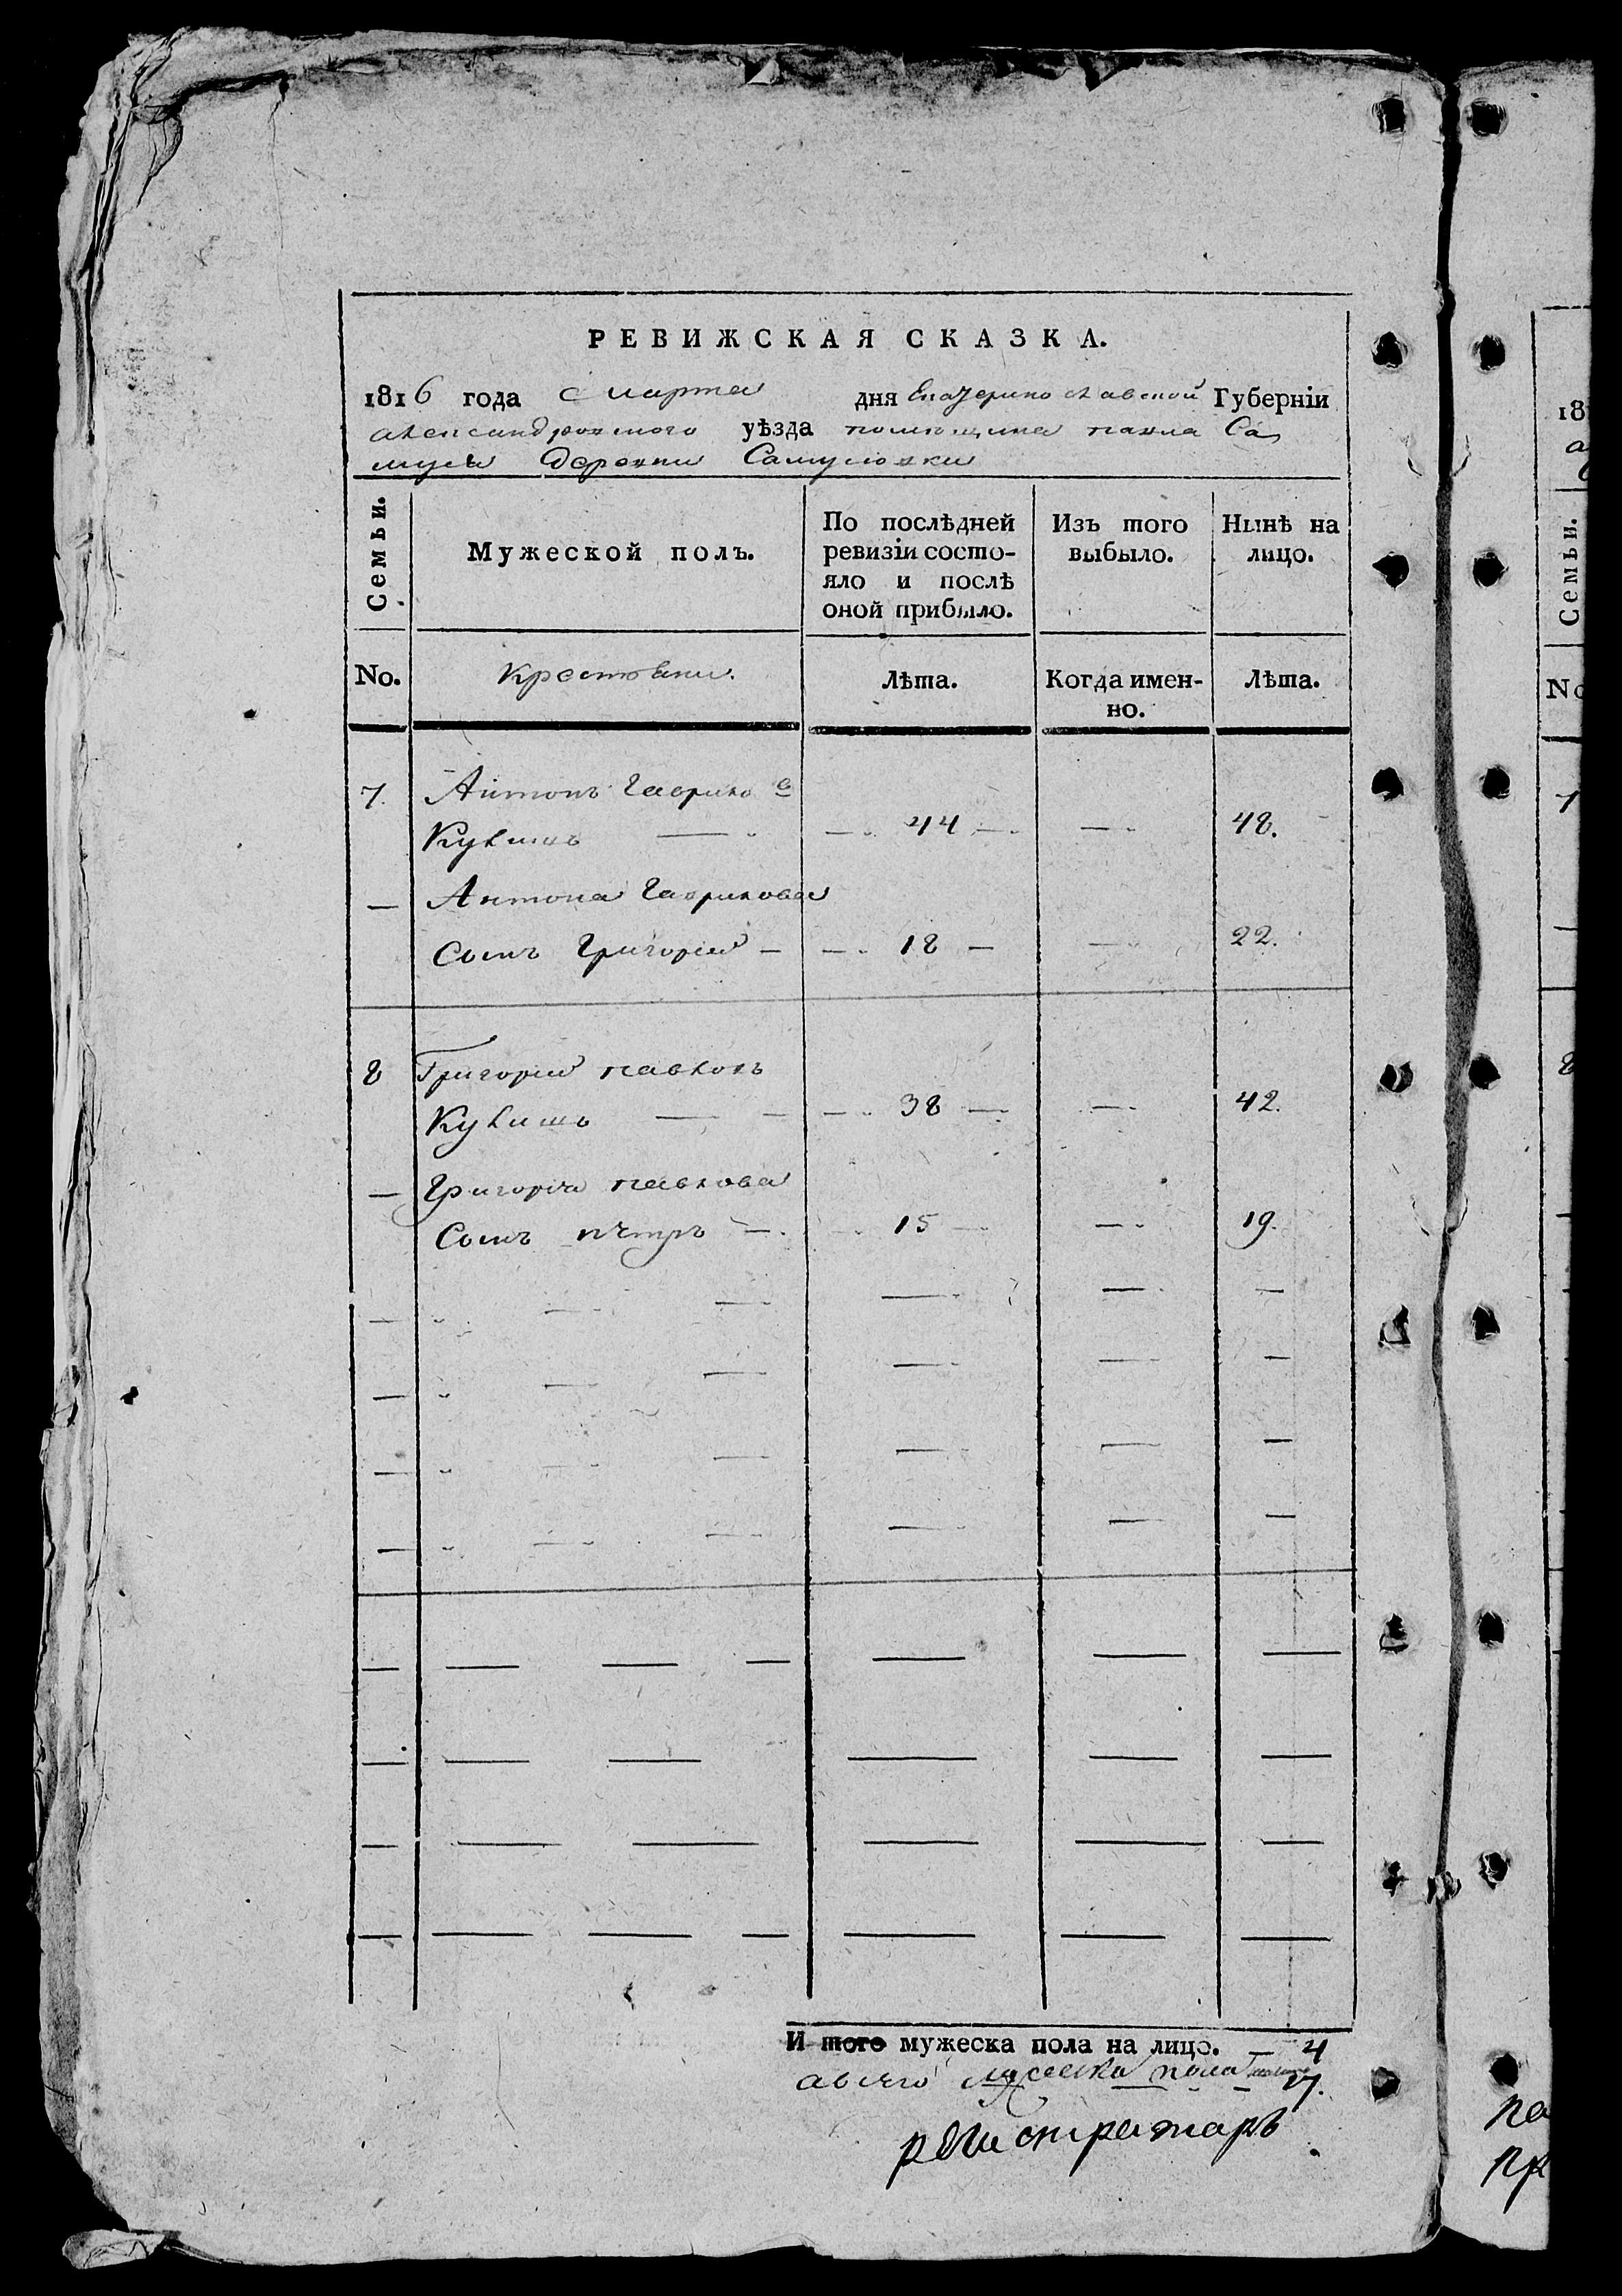 РЕВИЖСКАЯ СКАЗКА.
1816 года марта дня Екатеринославской Губерніи
александровского уѣзда помещика павла Са
муся деревни Самусовки
Семьи.
Мужеской полъ.
По послѣдней ревизіи состо-
яло и послѣ
оной прибыло.
Изъ того
выбыло.
Нынѣ на
лицо.
No.
Крестьяни.
Лѣта.
Когда имен-
но.
Лѣта.
7. Антонъ Гаврилов
Кукишъ — 44 — — 48.
— Антона Гаврилова
Сынъ Григорий — — 18 — — 22.
8 Григорий павловъ
Кукишъ — — 38 — — 42.
— Григория павлова
Сынъ петръ — 15 — — 19.
И того мужеска пола на лицо. — 4
а всего мужеска пола 17.
регистраторъ
18
а
Семьи.
No
7
8
па
пр